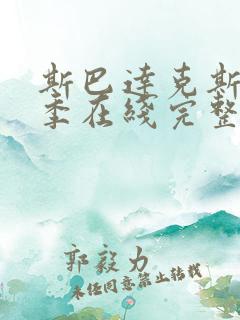 斯巴达克斯
季在线完整
郭毅力
未经同意禁止转载